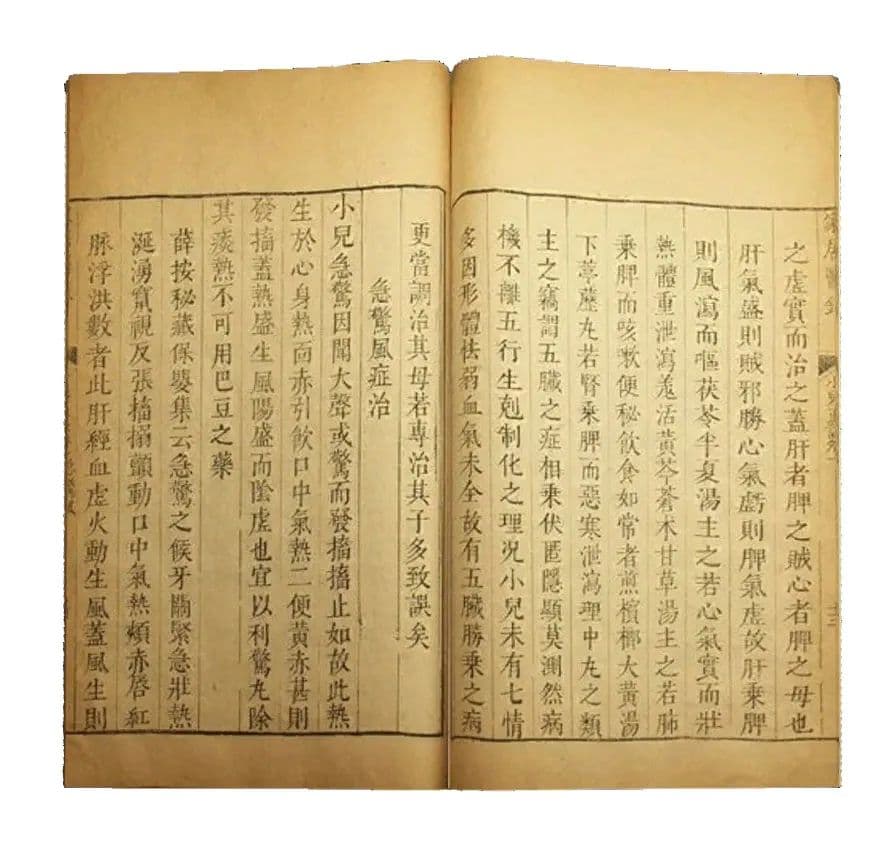 之虛實而治之蓋肝者脾之賊心者脾之母也
肝氣盛則賊邪勝心氣虧則脾氣虛故肝乘脾
則風瀉而嘔茯苓半夏湯主之若心氣實而壯
熱體重泄瀉羗活黃芩蒼术甘草湯主之若肺
乘脾而咳嗽便秘飲食如常者煎檳榔大黃湯
下葶藶丸若腎乘脾而惡寒泄瀉理中丸之類
主之竊謂五臟之症相乘伏匿隱顯莫測然病
機不離五行生剋制化之理况小兒未有七情
多因形體怯弱血氣未全故有五臟勝乘之病
更當調治其母若專治其子多致誤矣
急驚風症治
小兒急驚因聞大聲或驚而發搐搐止如故此熱
生於心身熱面赤引飲口中氣熱二便黃赤甚則
發搐蓋熱盛生風陽盛而陰虛也宜以利驚丸除
其痰熱不可用巴豆之藥
薛按秘藏保嬰集云急驚之候牙關緊急壯熱
涎湧竄視反張搐搦顫動口中氣熱頰赤唇紅
脉浮洪數者此肝經血虛火動生風蓋風生則